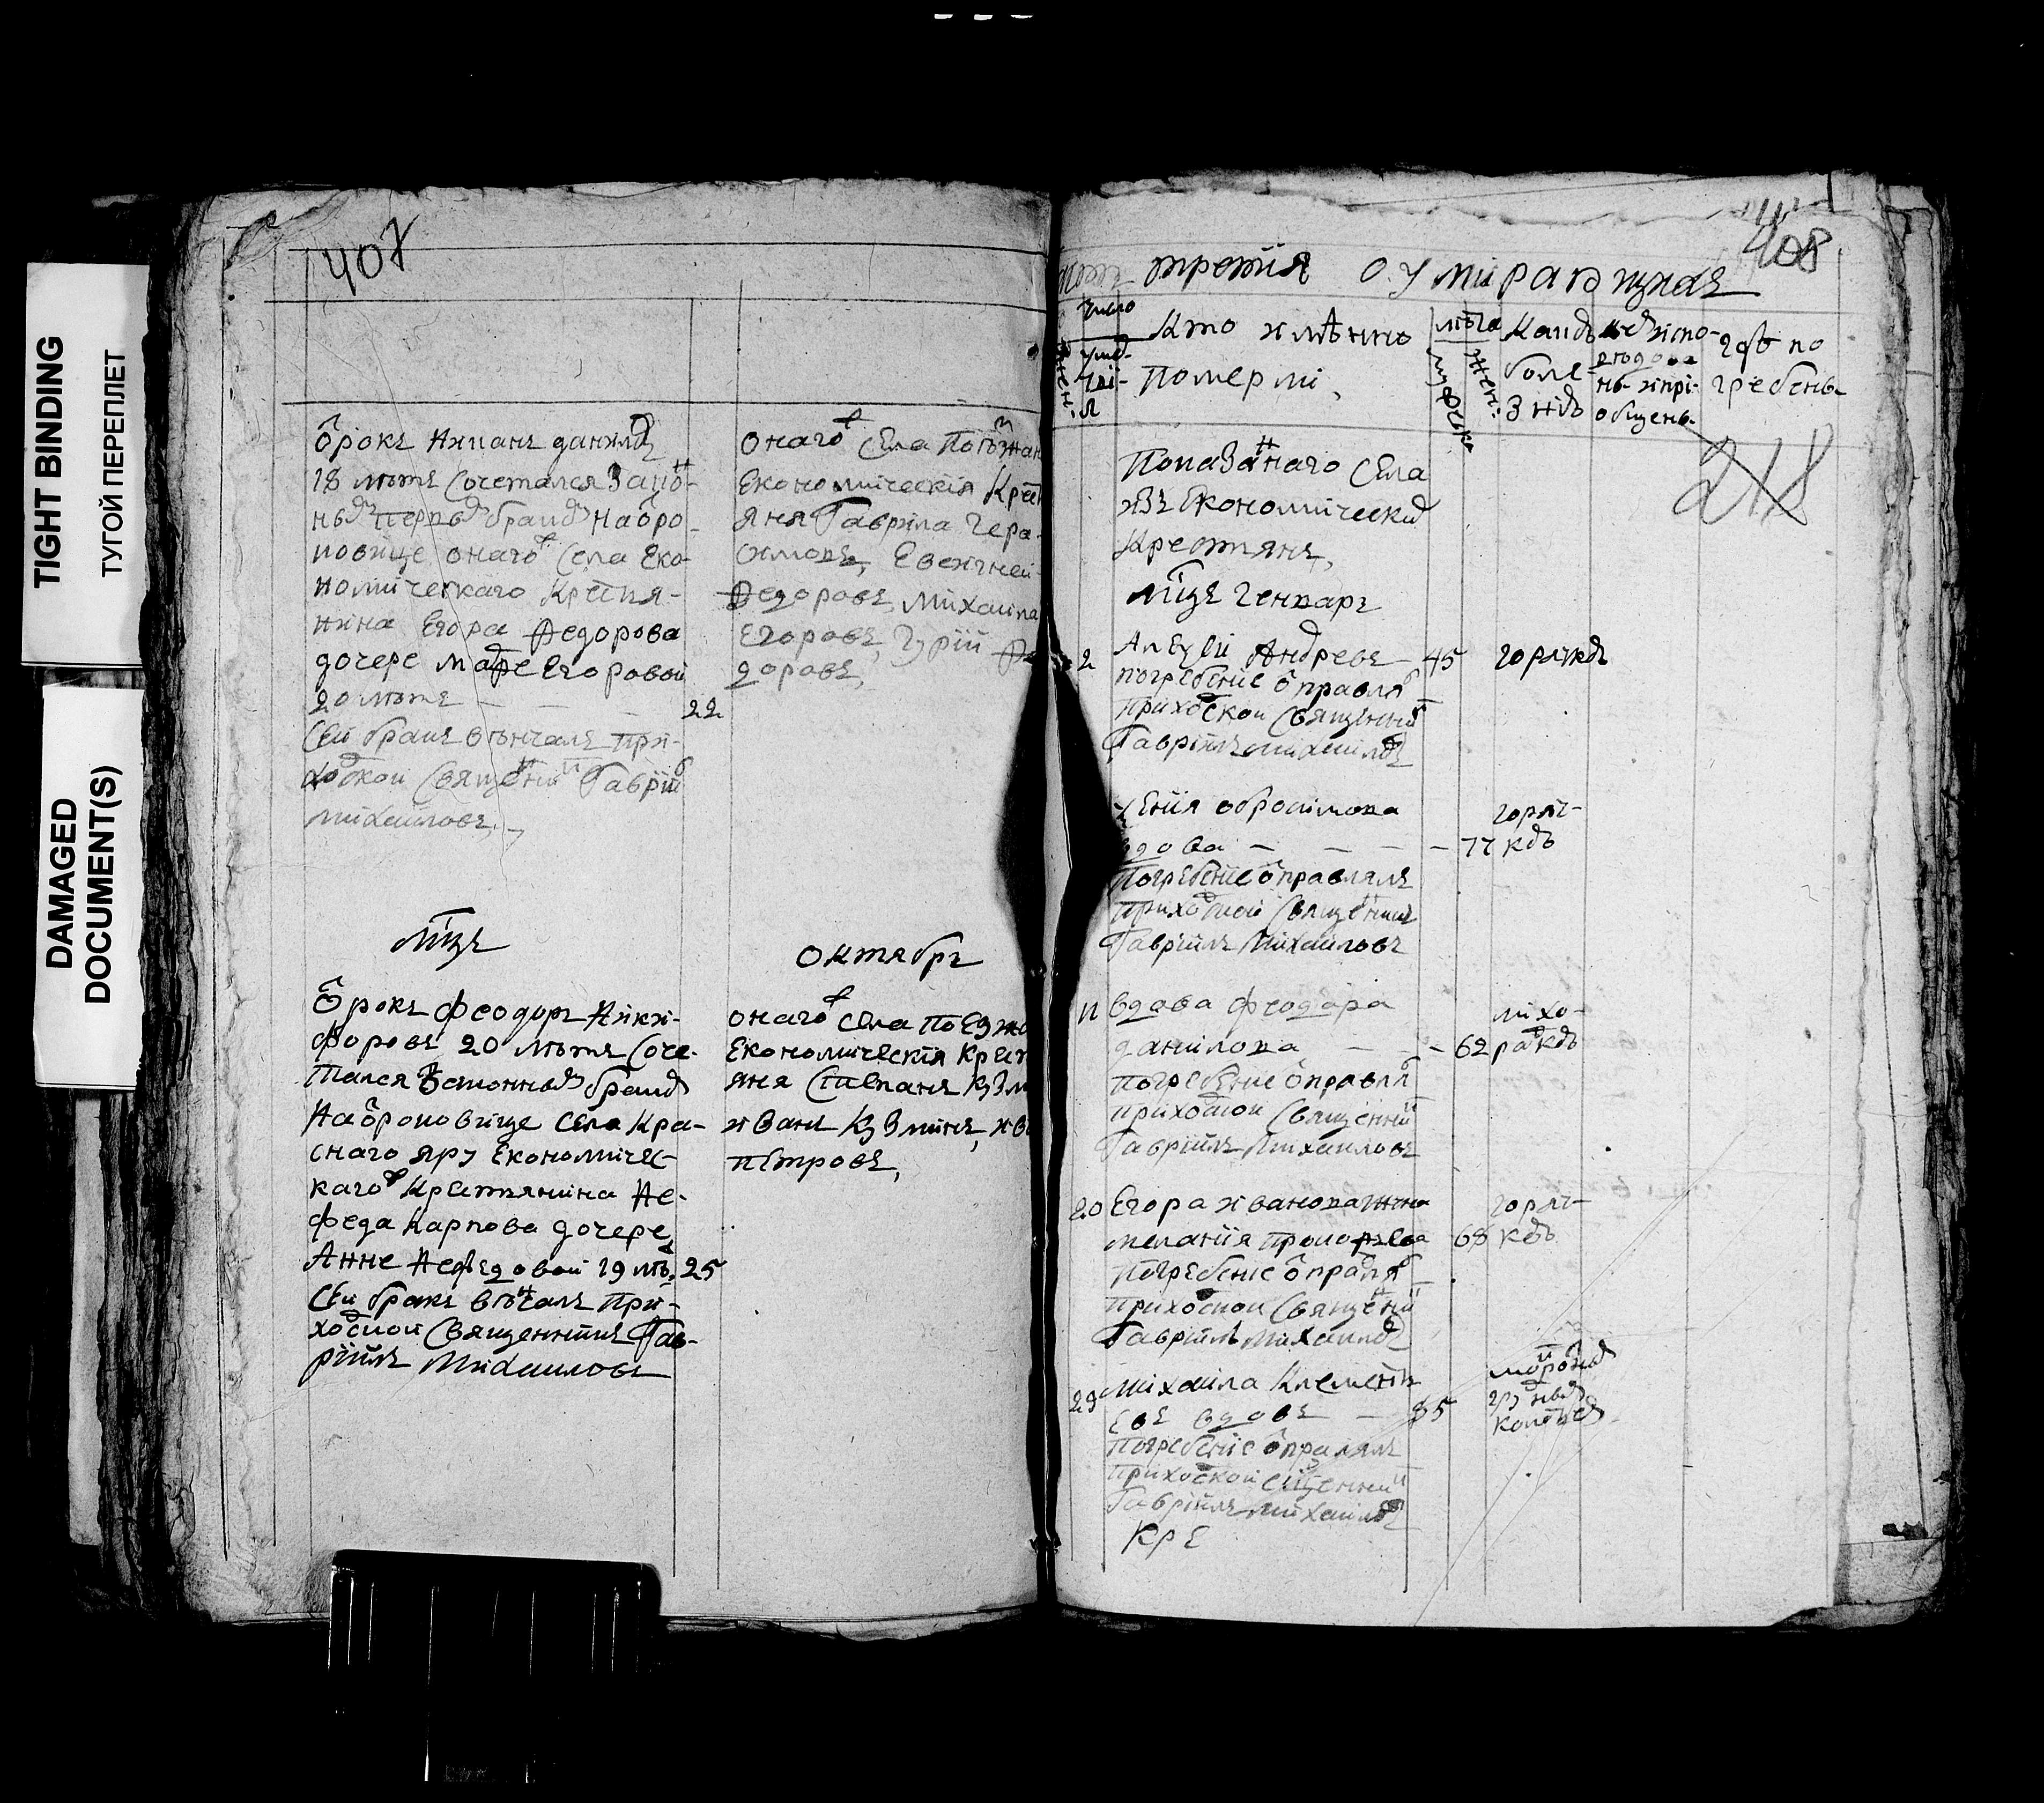 TIGHT BINDING
ТУГОЙ ПЕРЕПЛЕТ
DAMAGED
DOCUMENT(S)
407
ѿрокъ данилов
18 лѣтъ сочетался закон-
нымъ первымъ бракомъ на ѿро-
ковице онаго села Еко-
номическаго Крестья-
нина Егора Федорова
дочере Марѳе Егоровой
20 лѣтъ — — — 22
Сей бракъ вѣнчалъ при-
ходской священникъ Гавриилъ
Михаиловъ,
онаго села поезжан
Економическия Крест
яня Гаврила Гера-
симовъ, Евсигней
Федоровъ, Михаила
Егоровъ, Гурий Фе
доровъ,
мцъ
октябрь
ѿрокъ феодоръ Ники-
форовъ 20 лѣтъ соче-
тался законнымъ бракомъ
На ѿроковице села Кра-
снаго яру економичес-
каго Крестьянина Не-
феда Карпова дочере
Анне Нефедовой 19 лѣ. 25
Сей бракъ вѣнчалъ при-
ходской Священникъ Гав-
риилъ Михаиловъ
онаго села поезжа
Економическия Крест
яня Степанъ Кузми
Иванъ Кузминъ, ив
петровъ,
408
третия о умирающихъ
число
умер-
тви-
я
жен:
кто имѣнно
померли,
лѣта
мужеска
жен:
Какою
боле-
знию
исповедова
нъ и при-
общенъ
гдѣ по
гребенъ
218
Показаннаго Села
изъ економическихъ
Крестьянъ,
мцъ Генваръ
2 Алексѣй Андревъ — 45 горячкою
погребение ѿправлялъ
приходской священникъ
Гавриилъ Михаиловъ
Ксения обросимова горяч-
вдова — — — 77 кою
Погребение ѿправлялъ
приходской священникъ
Гавриилъ Михаиловъ
11 вдова феодора лихо-
данилова — — 62 радкою
погребение ѿправлялъ
приходской священникъ
Гавриилъ Михаиловъ
20 Егора Иванова жена горяч-
мелания прокофьева 68 кою
Погребение ѿправлялъ
приходской священникъ
Гавриилъ Михаиловъ
29 Михаила Клементь
евъ вдовъ — 85
колотьемъ
Погребение ѿправлялъ
приходской священникъ
Гавриилъ Михаиловъ
КРЕ